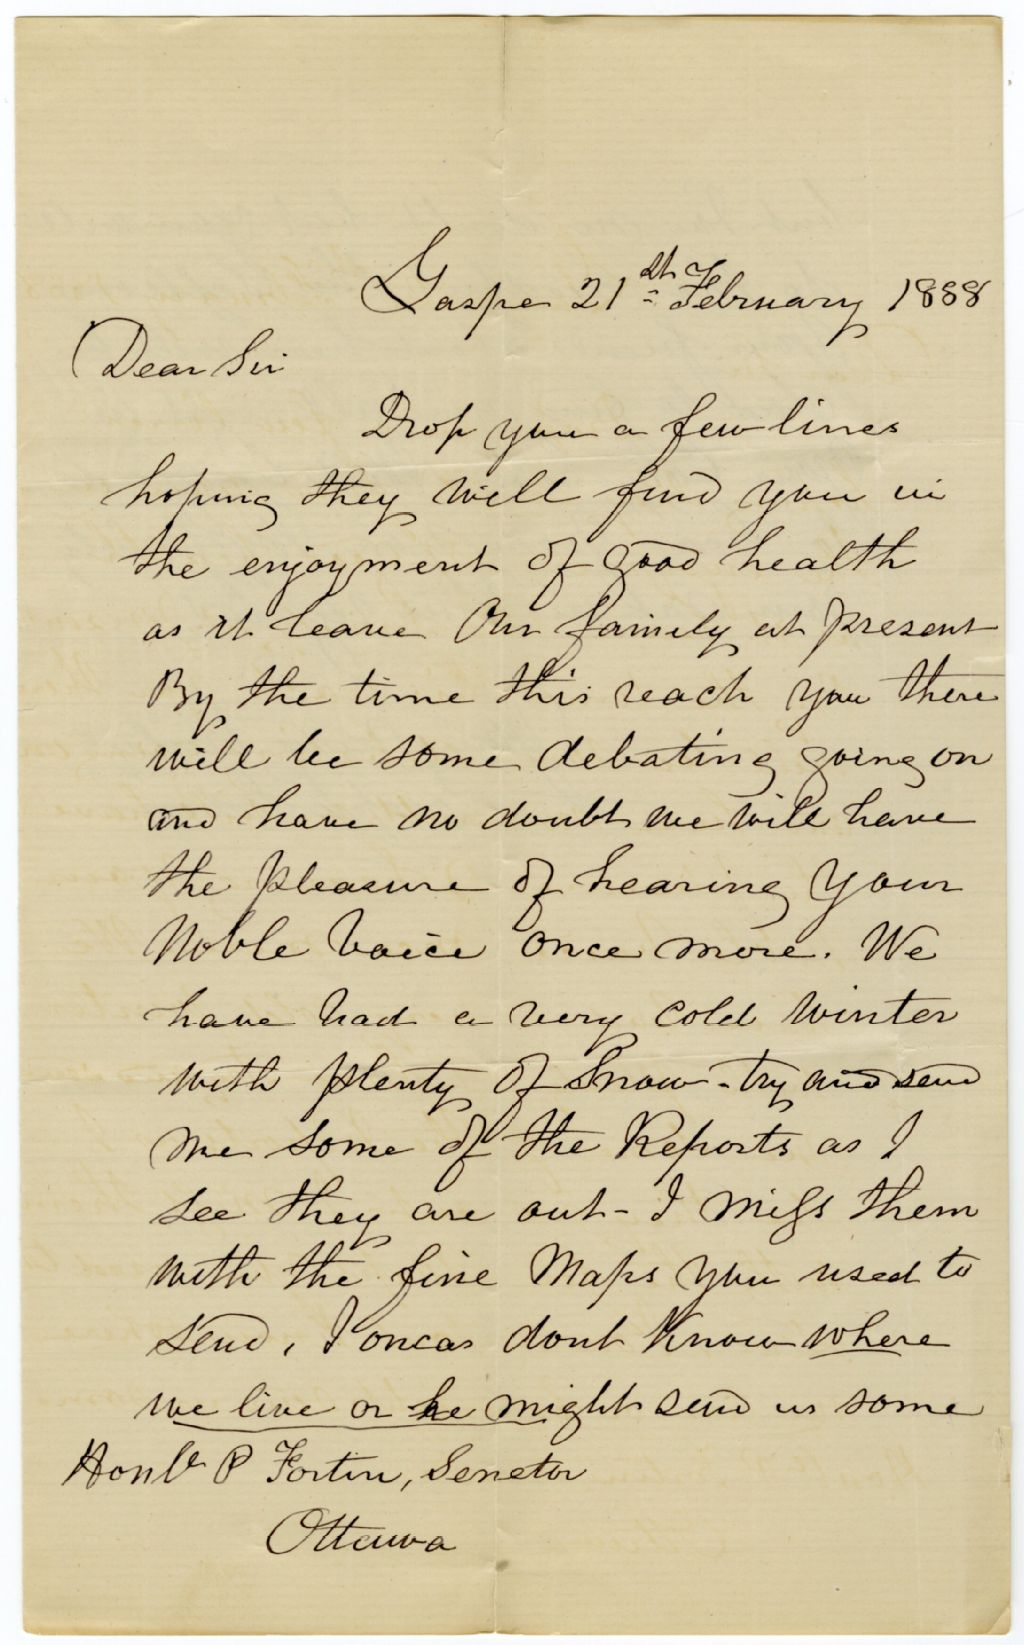 Gaspe 21st February 1888
Dear Sir
Drop you a few lines
hoping they will find you in
the enjoyment of good health
as it leave Our family at present
By the time this reach you there
will be some debating going on
and have no doubt we will have
the pleasure of hearing your
Noble Voice once more. We
have had a very cold winter
with plenty of Snow - try and send
me some of the Reports as I
see they are out - I miss them
with the fine Maps you used to
send, Joncas dont Know where
we live or he might send us some
Honble P Fortin, Senetor
Ottawa